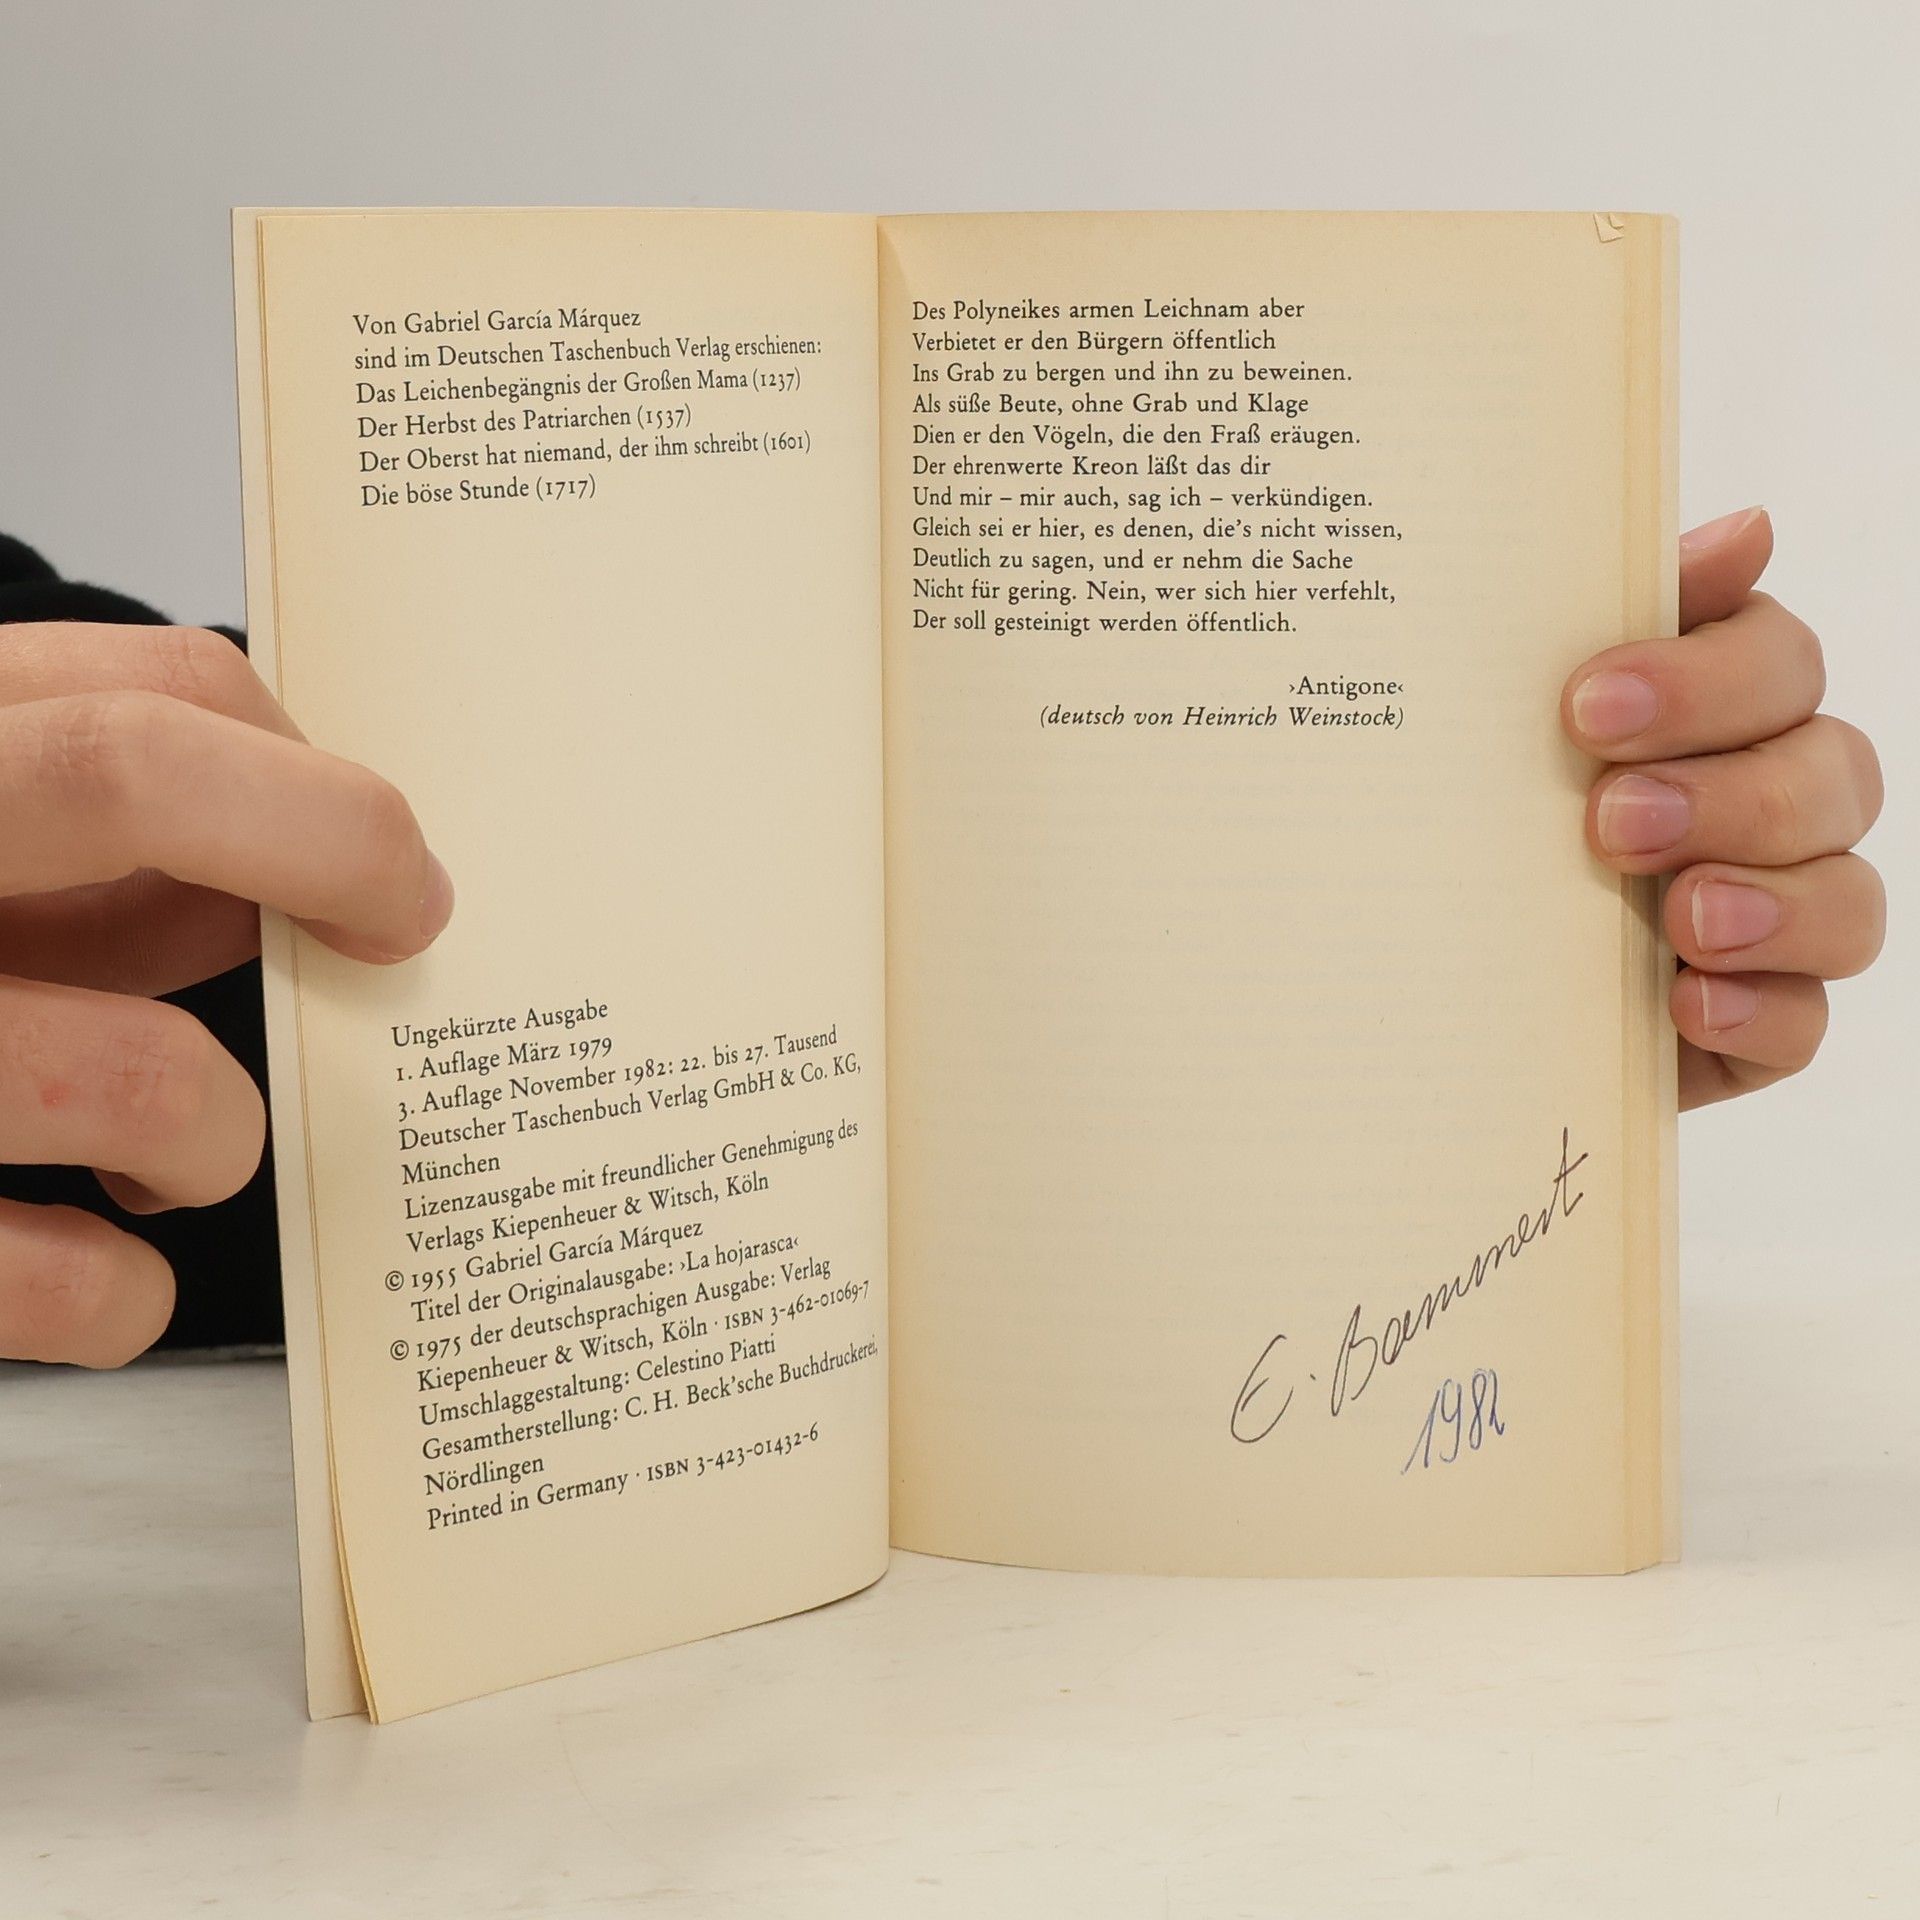 Von Gabriel García Márquez
sind im Deutschen Taschenbuch Verlag erschienen:
Das Leichenbegängnis der Großen Mama (1237)
Der Herbst des Patriarchen (1537)
Der Oberst hat niemand, der ihm schreibt (1601)
Die böse Stunde (1717)
Ungekürzte Ausgabe
1. Auflage März 1979
3. Auflage November 1982: 22. bis 27. Tausend
Deutscher Taschenbuch Verlag GmbH & Co. KG,
München
Lizenzausgabe mit freundlicher Genehmigung des
Verlags Kiepenheuer & Witsch, Köln
© 1955 Gabriel García Márquez
Titel der Originalausgabe: ›La hojarasca‹
© 1975 der deutschsprachigen Ausgabe: Verlag
Kiepenheuer & Witsch, Köln · ISBN 3-462-01069-7
Umschlaggestaltung: Celestino Piatti
Gesamtherstellung: C. H. Beck'sche Buchdruckerei,
Nördlingen
Printed in Germany · ISBN 3-423-01432-6
Des Polyneikes armen Leichnam aber
Verbietet er den Bürgern öffentlich
Ins Grab zu bergen und ihn zu beweinen.
Als süße Beute, ohne Grab und Klage
Dien er den Vögeln, die den Fraß eräugen.
Der ehrenwerte Kreon läßt das dir
Und mir – mir auch, sag ich – verkündigen.
Gleich sei er hier, es denen, die's nicht wissen,
Deutlich zu sagen, und er nehm die Sache
Nicht für gering. Nein, wer sich hier verfehlt,
Der soll gesteinigt werden öffentlich.
›Antigone‹
(deutsch von Heinrich Weinstock)
E.
1982